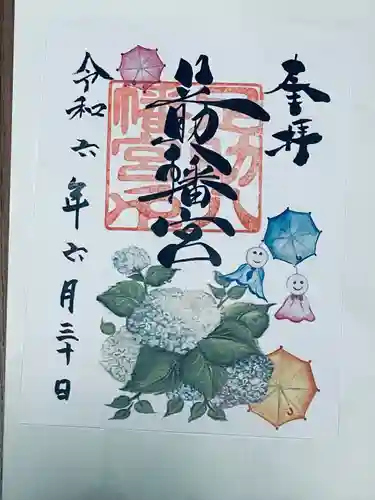 奉拝
八幡宮
令和六年六月三十日